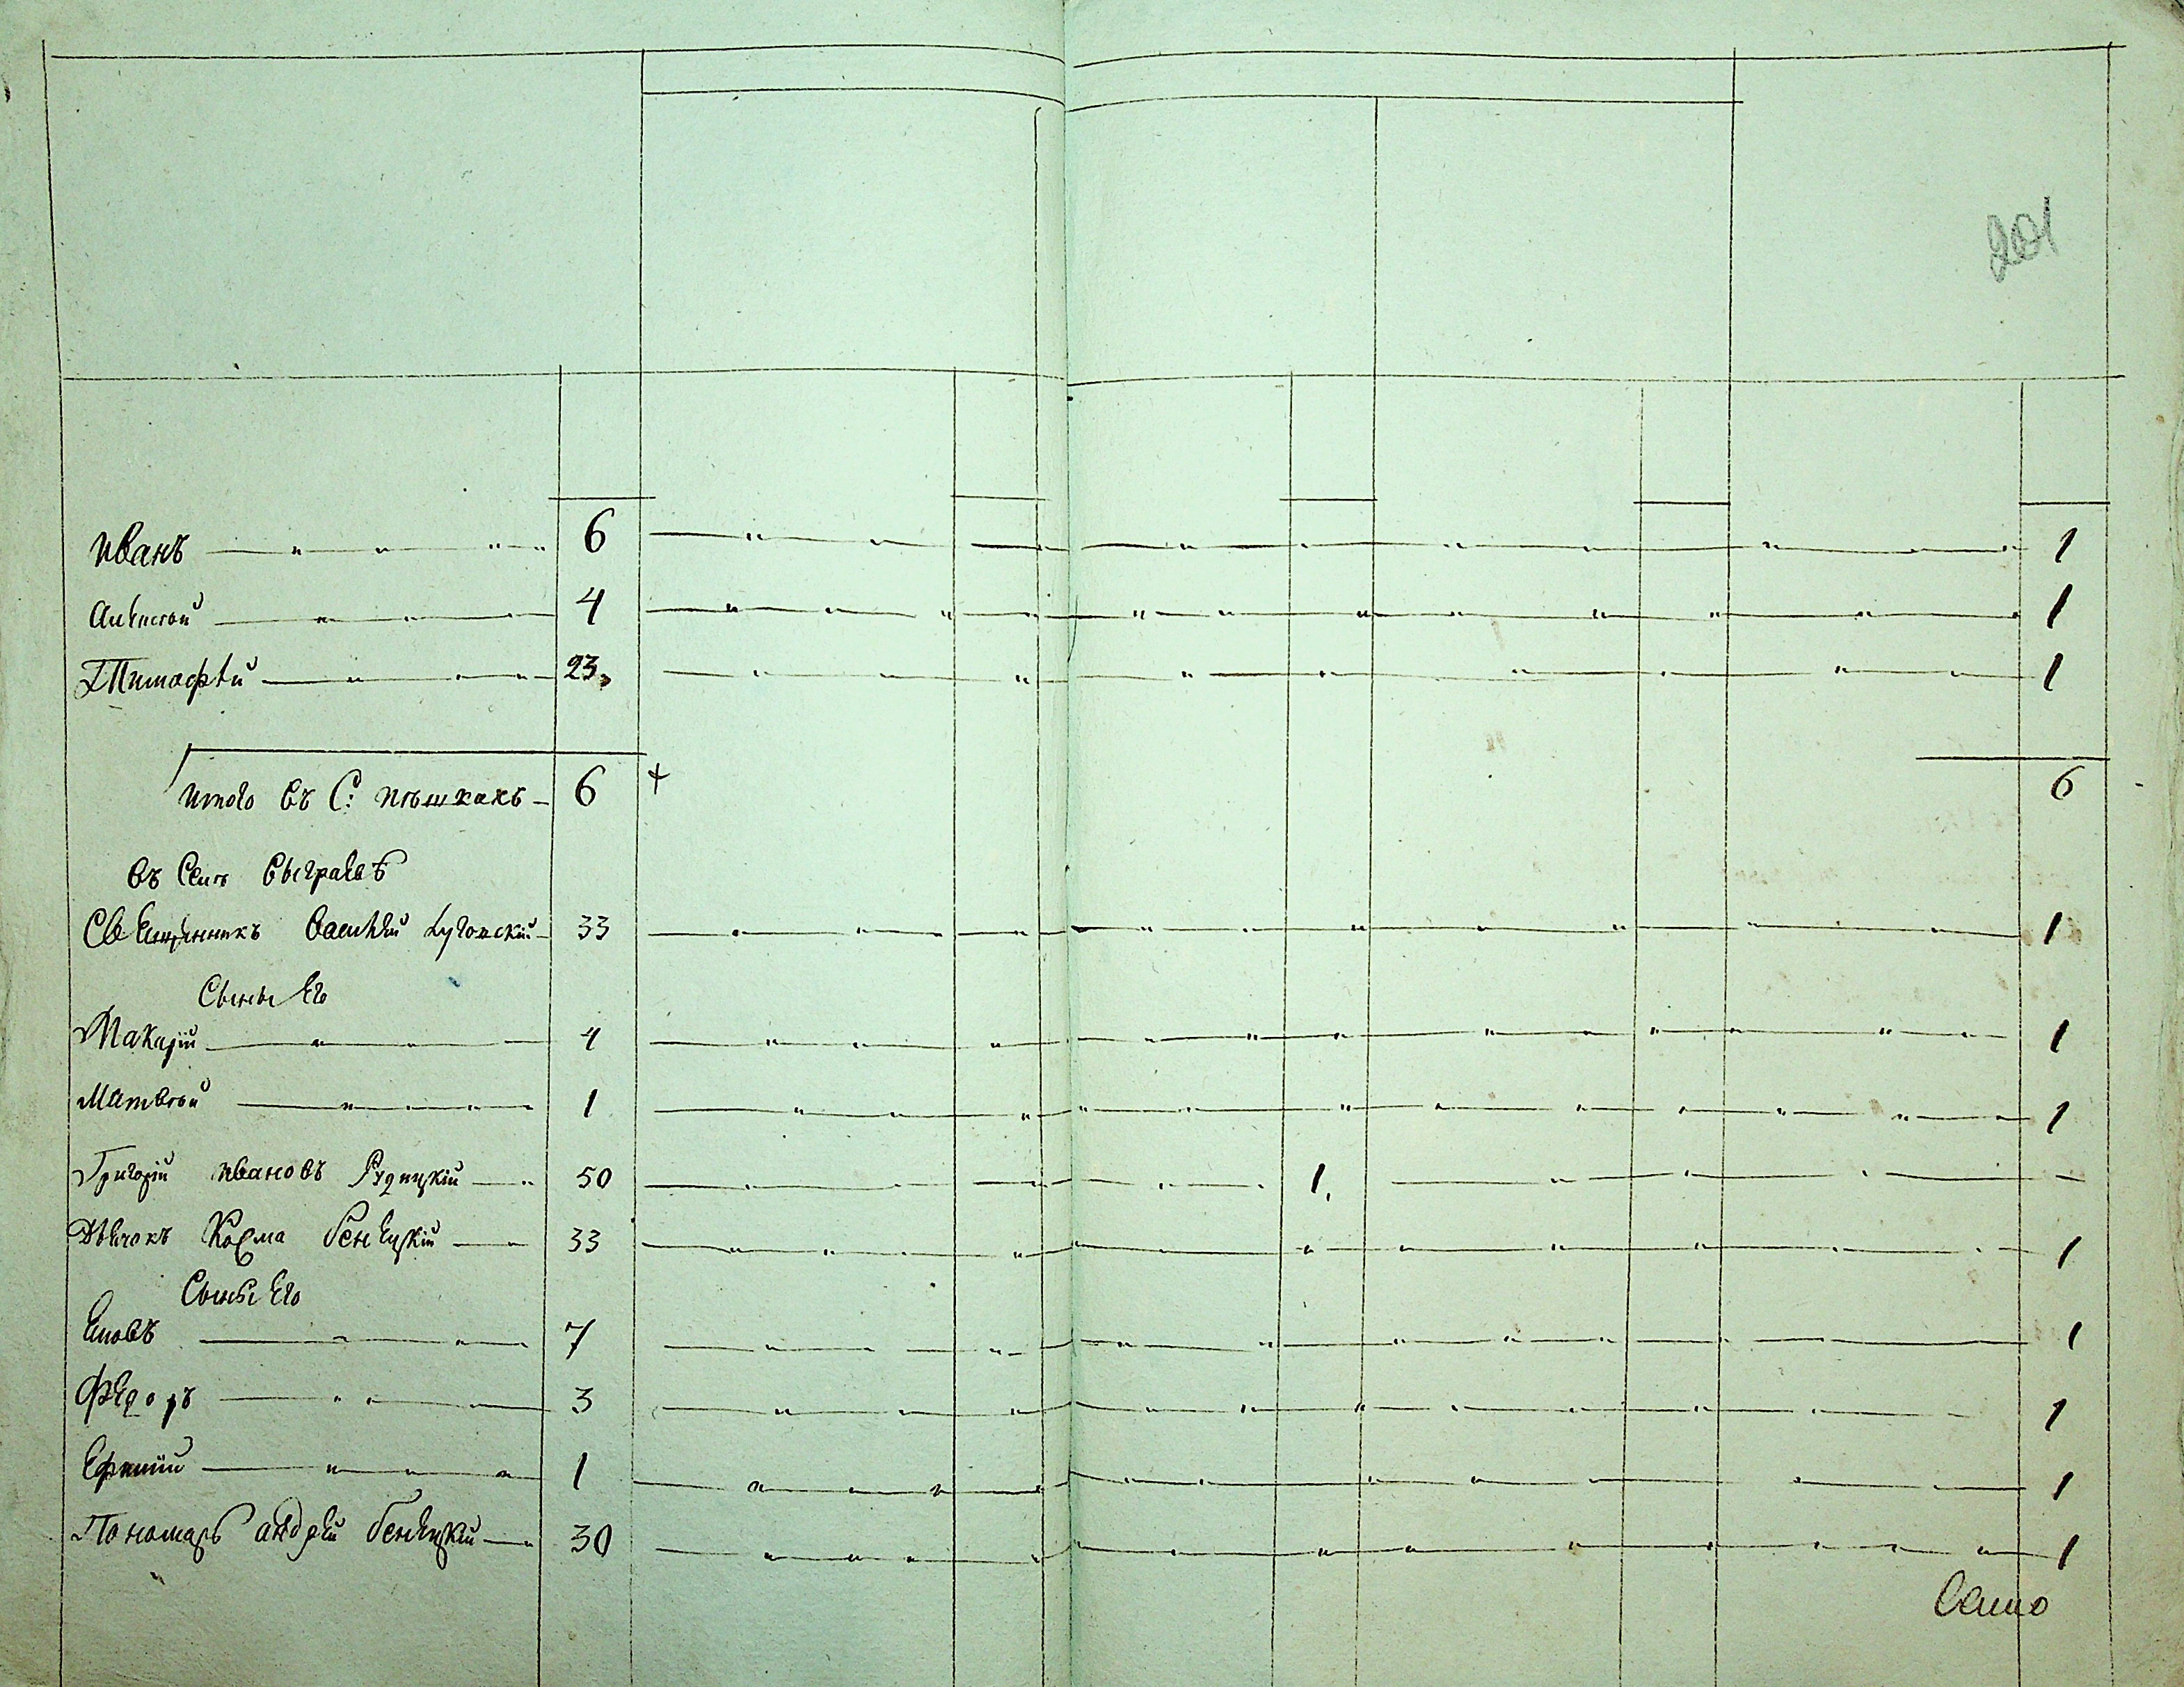 201
Иванъ 6 1
Алексѣй 4 1
Тимофѣй 23 1
Итого въ С: Пѣшкахъ 6 + 6
въ Селѣ
Священникъ Василѣй 33 1
Сыны Его
Макарій 4 1
Матвѣй 1 1
Григорій Ивановъ Рудицкій 50 1
Дьячокъ Козма Бенецкій 33 1
Сыны Его
Іовъ 7 1
Федоръ 3 1
Ефимій 1 1
Пономарь андрей Бенецкій 30 1